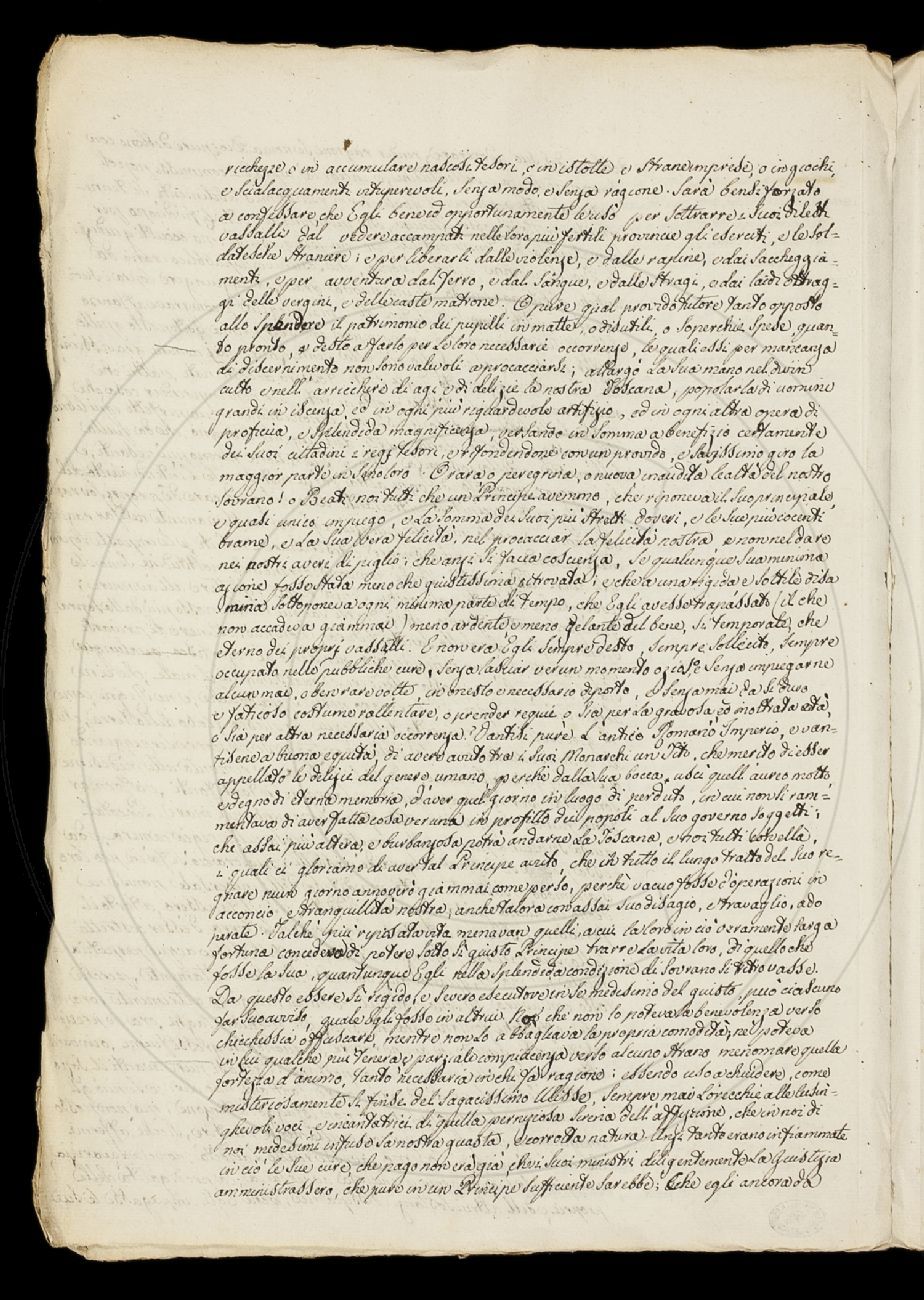 ricchezze o in accumulare nascosi tesori, o in istolte e strane imprese, o in giochi,
e scialacquamenti vituperevoli, senza modo, e senza ragione. Sarà bensì forzato
a confessare che Egli bene ed opportunamente le usò per sottrarre i suoi diletti
vassalli dal vedere accampati nelle loro più fertili provincie gli eserciti, e le sol-
datesche straniere; e per liberarli dalle violenze, e dalle rapine, e dai saccheggia-
menti, e per avventura dal ferro, e dal sangue, e dalle stragi, e dai laidi oltrag-
gi delle vergini, e delle caste matrone. O pure qual provido tutore tanto opposto
allo spendere il patrimonio dei pupilli in matte, o disutili, o soperchie spese, quan-
to pronto, e desto a farlo per le loro necessarie occorrenze, le quali essi per mancanza
di discernimento non sono valevoli a procacciarsi; allargò la sua mano nel divin
culto e nell'arricchire di agi e di delizie la nostra Toscana, popolarla di uomini
grandi in iscienza, ed in ogni più riguardevole artifizio, ed in ogni altra opera di
proficua, e splendida magnificenza, versando in somma a benefizio certamente
dei suoi cittadini i regj tesori, e rifondendone con un provido, e saggissimo giro la
maggior parte in seno loro. O rara o peregrina, o nuova inaudita lealtà del nostro
Sovrano! o Beati noi tutti che un Principe avemmo, che riponeva il suo principale
e quasi unico impiego, e la somma dei suoi più stretti doveri, e le sue più cocenti
brame, e la sua vera felicità, nel procacciar la felicità nostra e non nel dare
nei nostri averi di piglio; che anzi si facea coscienza, se qualunque sua minima
azione fosse stata meno che giustissima trovata; e che a una rigida e sottile disa
mina sottoponeva ogni minima parte di tempo, che Egli avesse trapassato (il che
non accadeva giammai) meno ardente e meno zelante del bene, sì temporale, che
eterno dei propri vassalli. E non era Egli sempre desto, sempre sollecito, sempre
occupato nelle pubbliche cure, senza lasciar verun momento ozioso, e senza impiegarne
alcun mai, o ben rare volte, in onesto e necessario diporto, e senza mai da sì duro
e faticoso costume rallentare, o prender requie o sia per la gravosa ed inoltrata età,
o sia per altra necessaria occorrenza? Vantisi pure l'antico Romano Imperio, e van-
tisene a buona equità, di avere avuto tra i suoi Monarchi un Tito, che meritò di esser
appellato le delizie del genere umano, perchè dalla sua bocca uscì quell'aureo motto
e degno di eterna memoria, d'aver quel giorno in luogo di perduto, in cui non si ram-
mentava di aver fatta cosa veruna in profitto dei popoli al suo governo soggetti;
che assai più altera, e burbanzosa potrà andarne la Toscana, e noi tutti con ella,
i quali ci gloriamo di aver tal Principe avuto, che in tutto il lungo tratto del suo re-
gnare niun giorno annoverò giammai come perso, perchè vacuo fosse d'operazioni in
acconcio, e tranquillità nostra, anche talora con assai suo disagio, e travaglio, ado
perate. Talchè più riposata vita menavan quelli, a cui la loro in ciò veramente larga
fortuna concedeva di potere sotto sì giusto Principe trarre la vita loro, di quello che
fosse la sua, quantunque Egli nella splendida condizione di Sovrano si ritrovasse.
Da questo essere sì rigido, e severo esecutore in se medesimo del giusto, può ciascuno
far suo avviso, quale egli fosse in altrui che non lo poteva la benevolenza verso
chicchessia offuscare, mentre non lo abbagliava la propria comodità; nè poteva
in lui qualche più tenera, e parziale compiacenza verso alcuno strano menomare quella
fortezza d'animo, tanto necessaria in chi fa ragione: essendo uso a chiudere, come
misteriosamente si finse del sagacissimo Ulisse, sempre mai l'orecchie alle lusin-
ghevoli voci, e incantatrici di quella perniziosa sirena dell'affezione, che in noi di
noi medesimi infuse la nostra guasta, e corrotta natura. Anzi tanto erano infiammate
in ciò le sue cure, che pago non era già che i suoi ministri diligentemente la Giustizia
amministrassero, che pure in un Principe sufficiente sarebbe; che egli ancora da